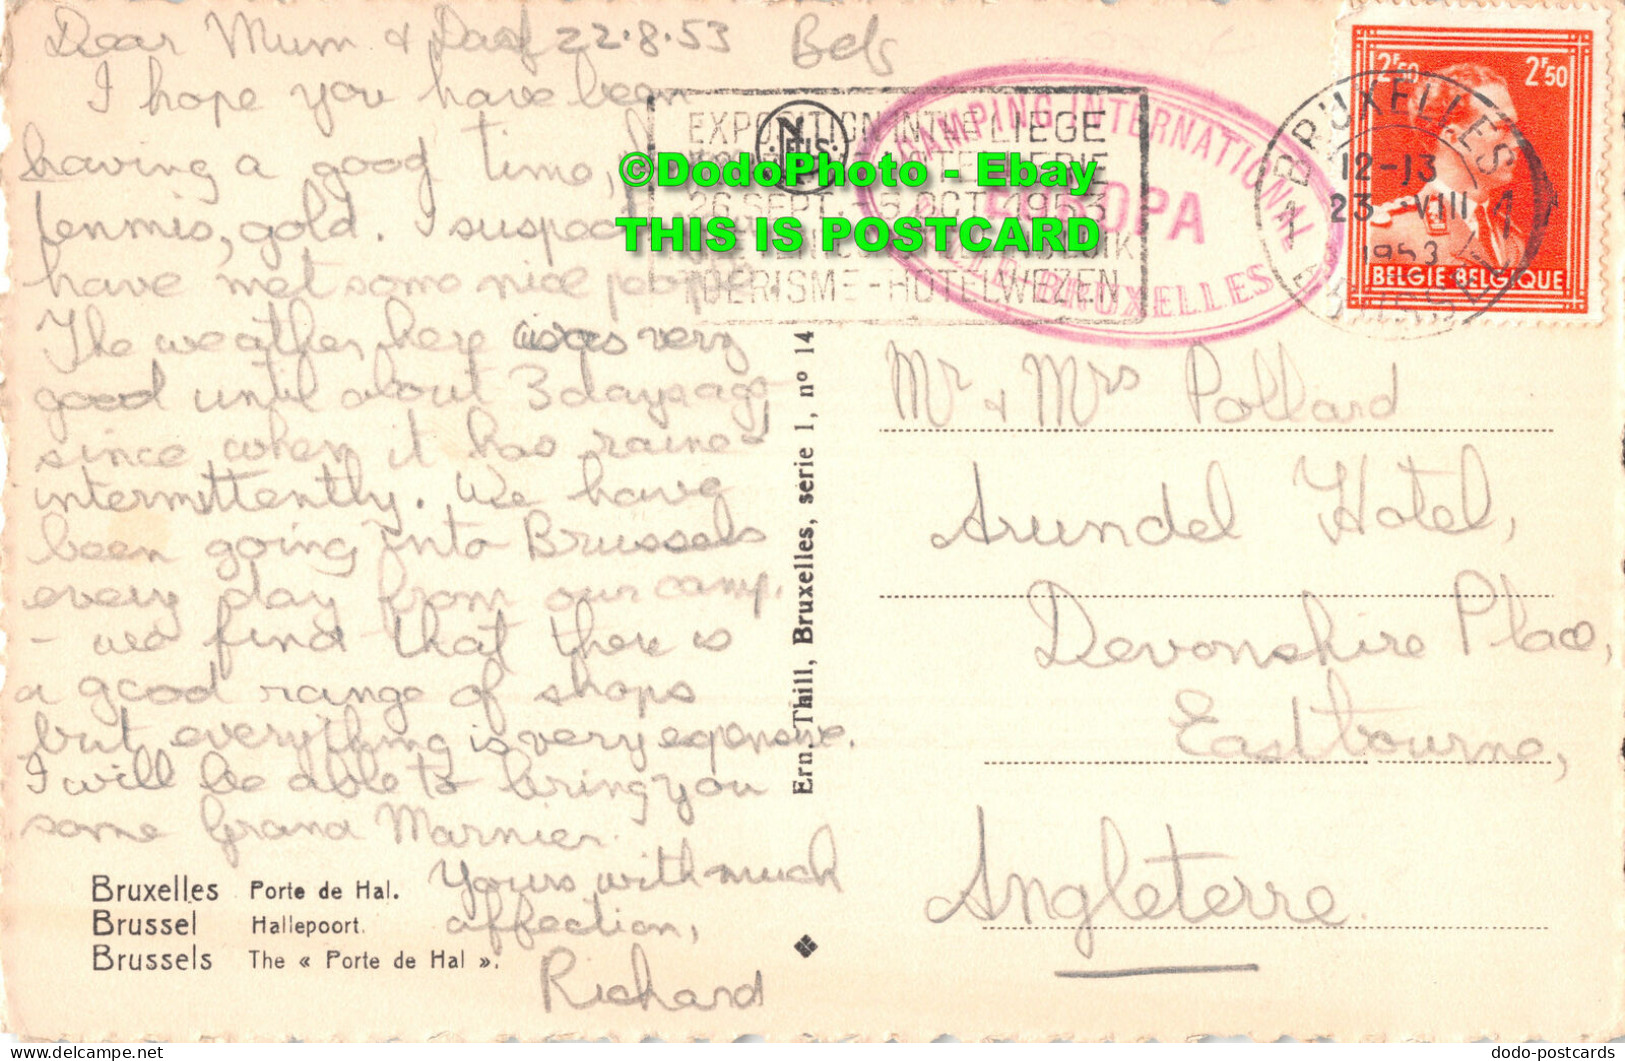 Dear Mum & Dad 22.8.53
I hope you have been
having a good time,
tennis, gold. I suspect
have met some nice people
The weather here was very
good until about 3 days ago,
since when it has rained
intermittently. We have
been going into Brussels
every day from our camp.
- we find that there is
a good range of shops
but everything is very expensive.
I will be able to bring you
some Grand Marnier.
Yours with much
affection,
Richard
Bruxelles Porte de Hal.
Brussel Hallepoort.
Brussels The « Porte de Hal ».
Ern. Thill, Bruxelles, série 1, nº 14
EXPOSITION INTNLE LIEGE
26 SEPT. OCT. 1953
TOERISME-HOTELWEZEN
CAMPING INTERNATIONAL
EUROPA
BRUXELLES
BRUXELLES
12-13
23 VIII
1953
BRUSSEL
2F50 2F50
BELGIE-BELGIQUE
Mr & Mrs Pollard
Arundel Hotel,
Devonshire Place,
Eastbourne,
Angleterre.
©DodoPhoto - Ebay
THIS IS POSTCARD
dodo-postcards